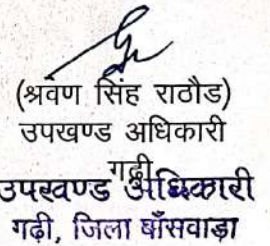 (श्रवण सिंह राठौड)
उपखण्ड अधिकारी
गढ़ी
उपखण्ड अधिकारी
गढ़ी, जिला बाँसवाडा